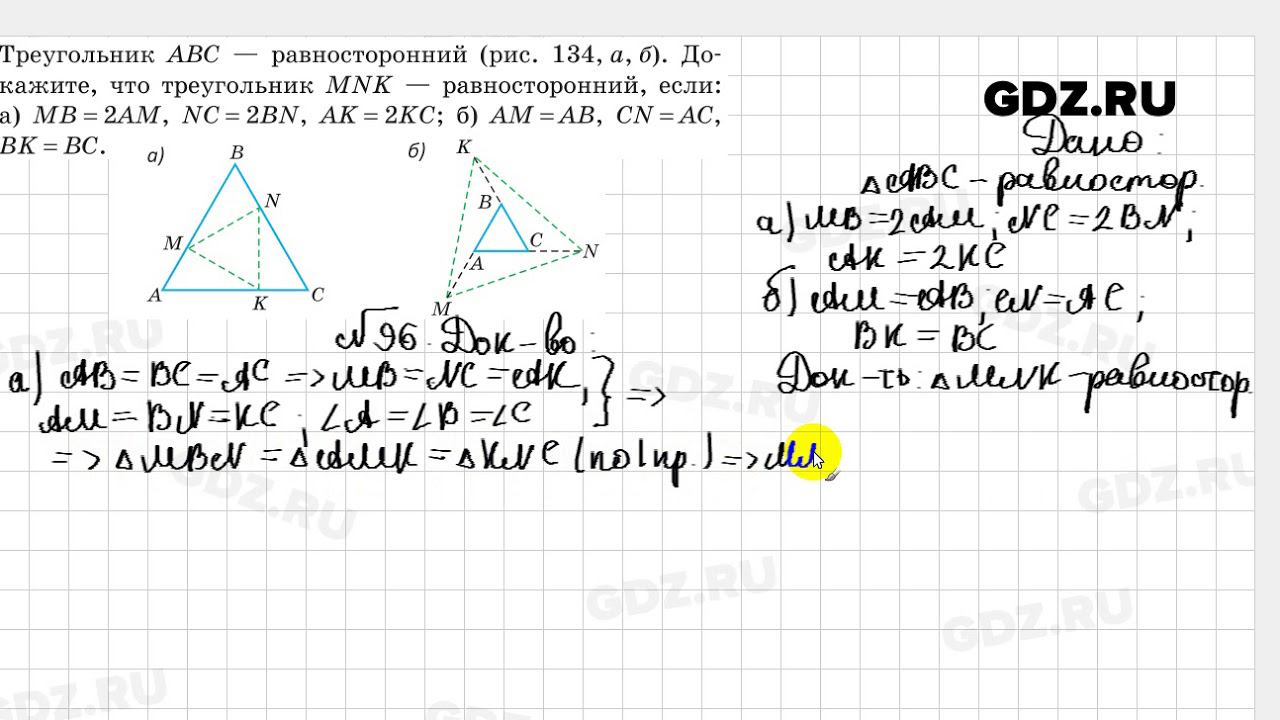 Треугольник ABC — равносторонний (рис. 134, а, б). До-
кажите, что треугольник MNK — равносторонний, если:
а) MB = 2AM, NC = 2BN, AK = 2KC; б) AM = AB, CN = AC,
BK = BC.
а)
B
N
M
A
K
C
б)
K
B
C
A
N
M
GDZ.RU
Дано:
△ABC – равностор.
а) MB = 2AM; NC = 2BN;
AK = 2KC
б) AM = AB; CN = AC;
BK = BC
Док-ть: △MNK – равностор.
№96. Док-во:
а) AB = BC = AC => MB = NC = AK, } =>
AM = BN = KC; ∠A = ∠B = ∠C
=> △MBN = △AMK = △KNC (по I пр.) => MN
GDZ.RU
GDZ.RU
GDZ.RU
GDZ.RU
GDZ.RU
GDZ.RU
GDZ.RU
GDZ.RU